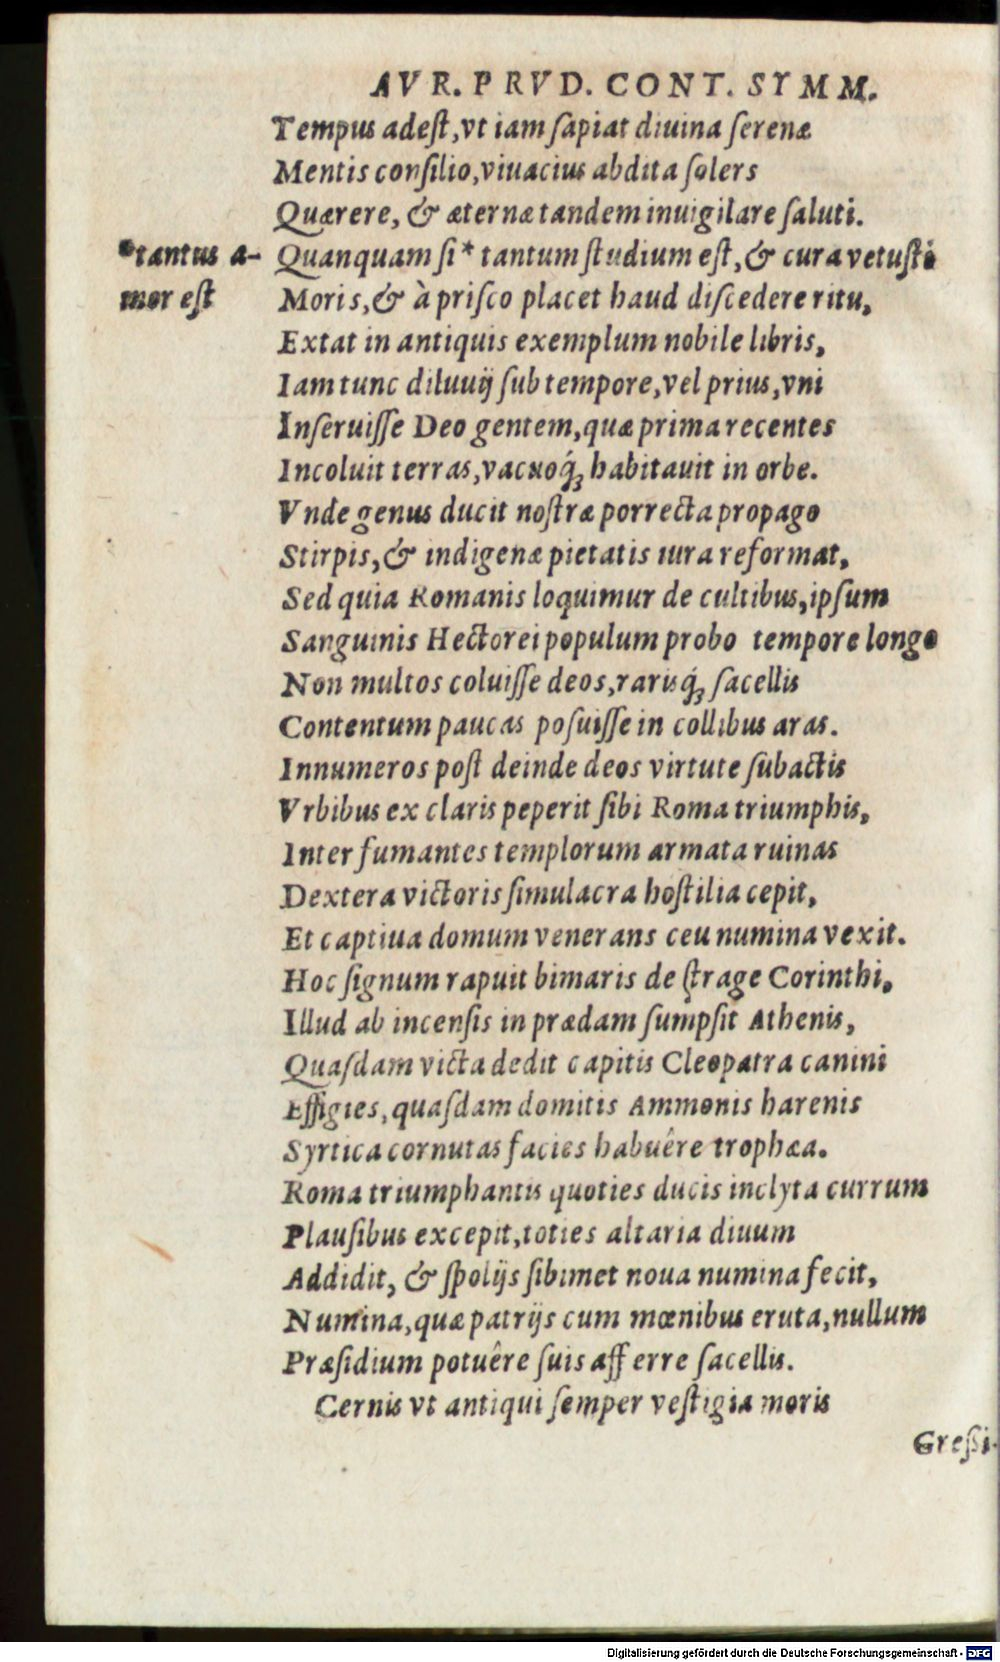 AVR. PRVD. CONT. SYMM.
Tempus adeſt, vt iam ſapiat diuina ſerenæ
Mentis conſilio, viuacius abdita ſolers
Quærere, & æternæ tandem inuigilare ſaluti.
*tantus a- Quanquam ſi* tantum ſtudium eſt, & cura vetuſti
mor eſt Moris, & à priſco placet haud diſcedere ritu,
Extat in antiquis exemplum nobile libris,
Iam tunc diluuij ſub tempore, vel prius, vni
Inſeruiſſe Deo gentem, quæ prima recentes
Incoluit terras, vacuoq́; habitauit in orbe.
Vnde genus ducit noſtræ porrecta propago
Stirpis, & indigenæ pietatis iura reformat,
Sed quia Romanis loquimur de cultibus, ipſum
Sanguinis Hectorei populum probo tempore longo
Non multos coluiſſe deos, rarisq́; ſacellis
Contentum paucas poſuiſſe in collibus aras.
Innumeros poſt deinde deos virtute ſubactis
Vrbibus ex claris peperit ſibi Roma triumphis,
Inter fumantes templorum armata ruinas
Dextera victoris ſimulacra hoſtilia cepit,
Et captiua domum venerans ceu numina vexit.
Hoc ſignum rapuit bimaris de ſtrage Corinthi,
Illud ab incenſis in prædam ſumpſit Athenis,
Quaſdam victa dedit capitis Cleopatra canini
Effigies, quaſdam domitis Ammonis harenis
Syrtica cornutas facies habuêre trophæa.
Roma triumphantis quoties ducis inclyta currum
Plauſibus excepit, toties altaria diuum
Addidit, & ſpolijs ſibimet noua numina fecit,
Numina, quæ patrijs cum mœnibus eruta, nullum
Præſidium potuêre ſuis afferre ſacellis.
Cernis vt antiqui ſemper veſtigia moris
Greſsi-
Digitalisierung gefördert durch die Deutsche Forschungsgemeinschaft - DFG